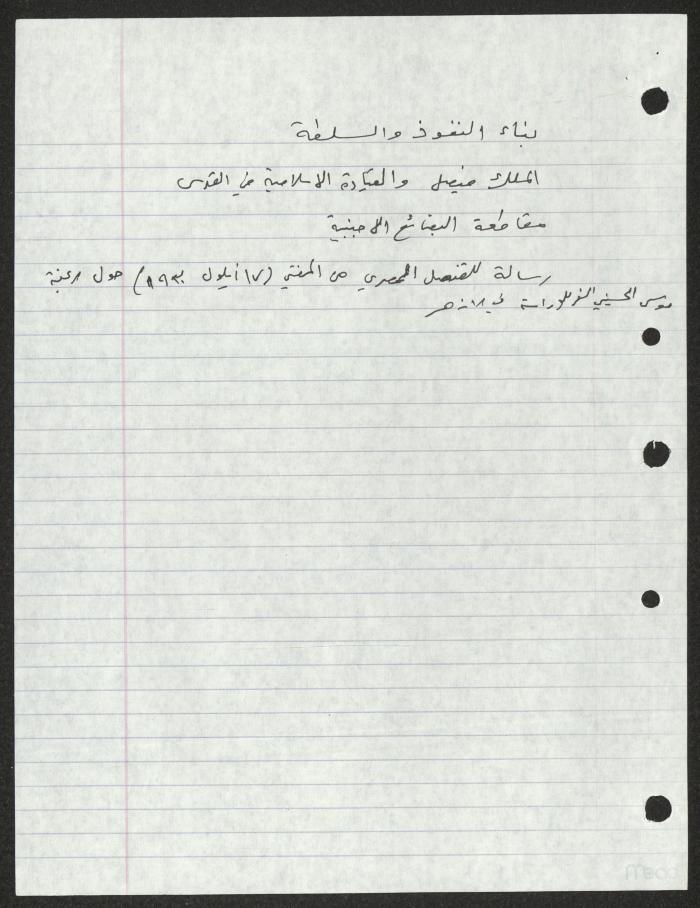 بناء النفوذ والسلطة
الملك فيصل والقيادة الاسلامية في القدس
مقاطعة البضائع الاجنبية
رسالة للقنصل المصري من المفتي (١٧ أيلول) حول رغبة
موسى الحسيني للدراسة في الازهر